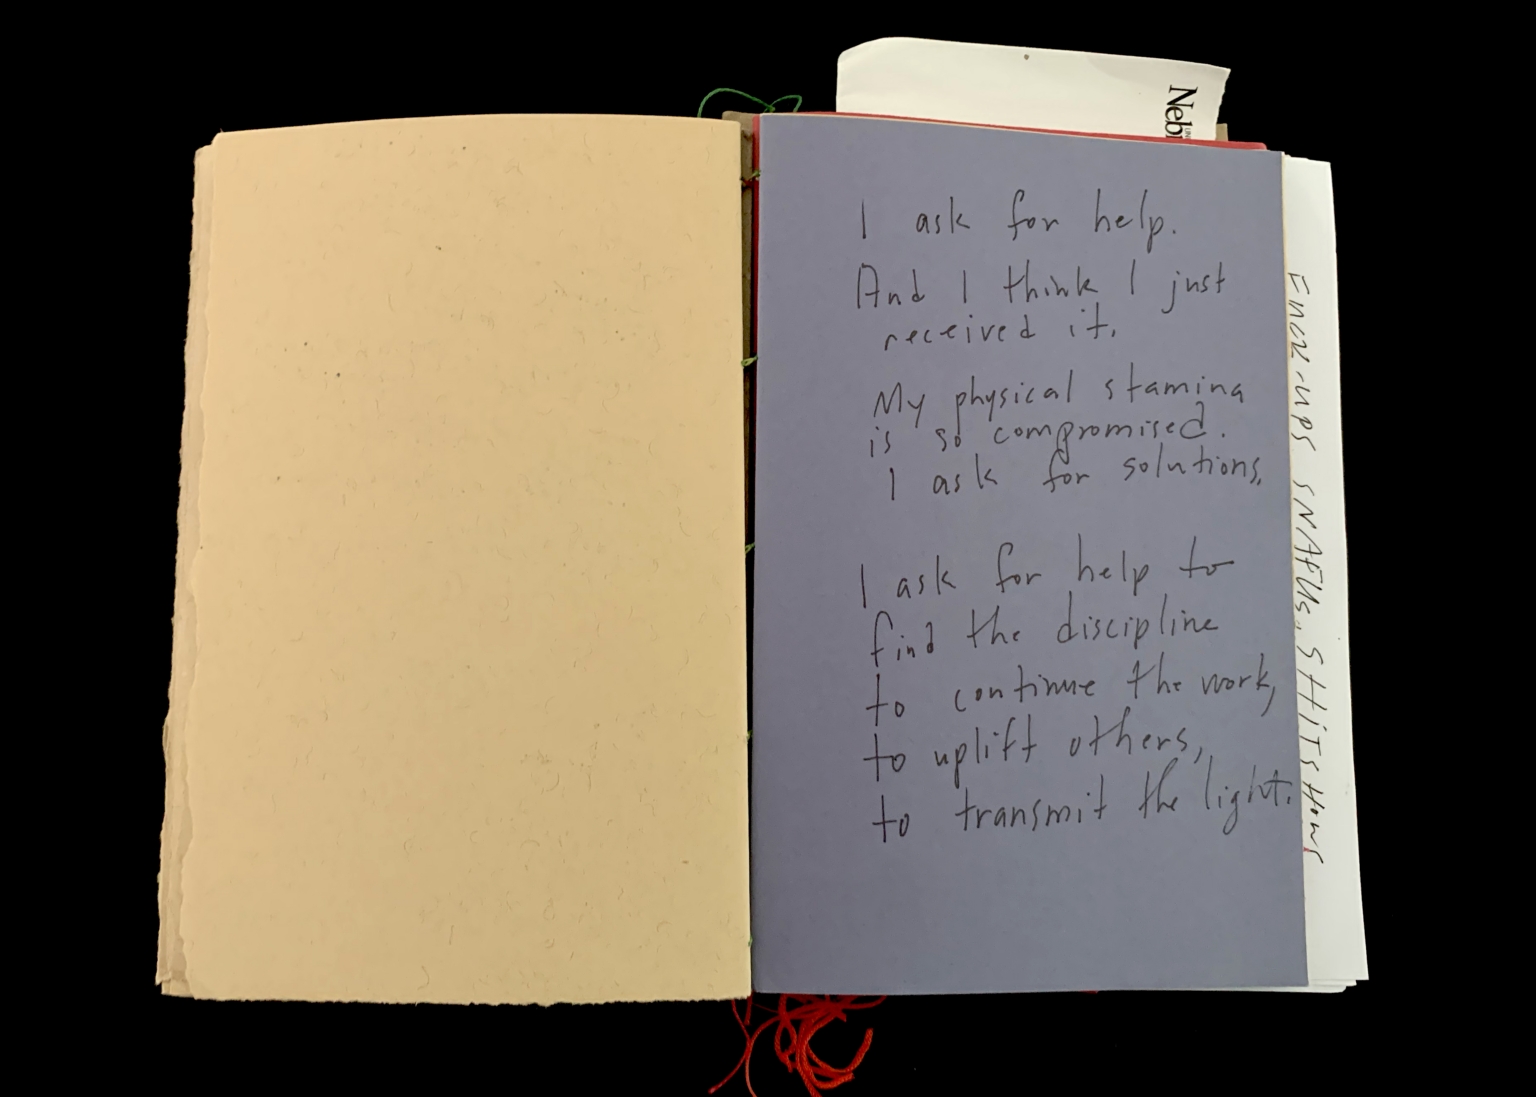 Neb
I ask for help.
And I think I just
received it.
My physical stamina
is so compromised.
I ask for solutions.
I ask for help to
find the discipline
to continue the work,
to uplift others,
to transmit the light.
FUCK-UPS SNAFUs, SHITSHOWS